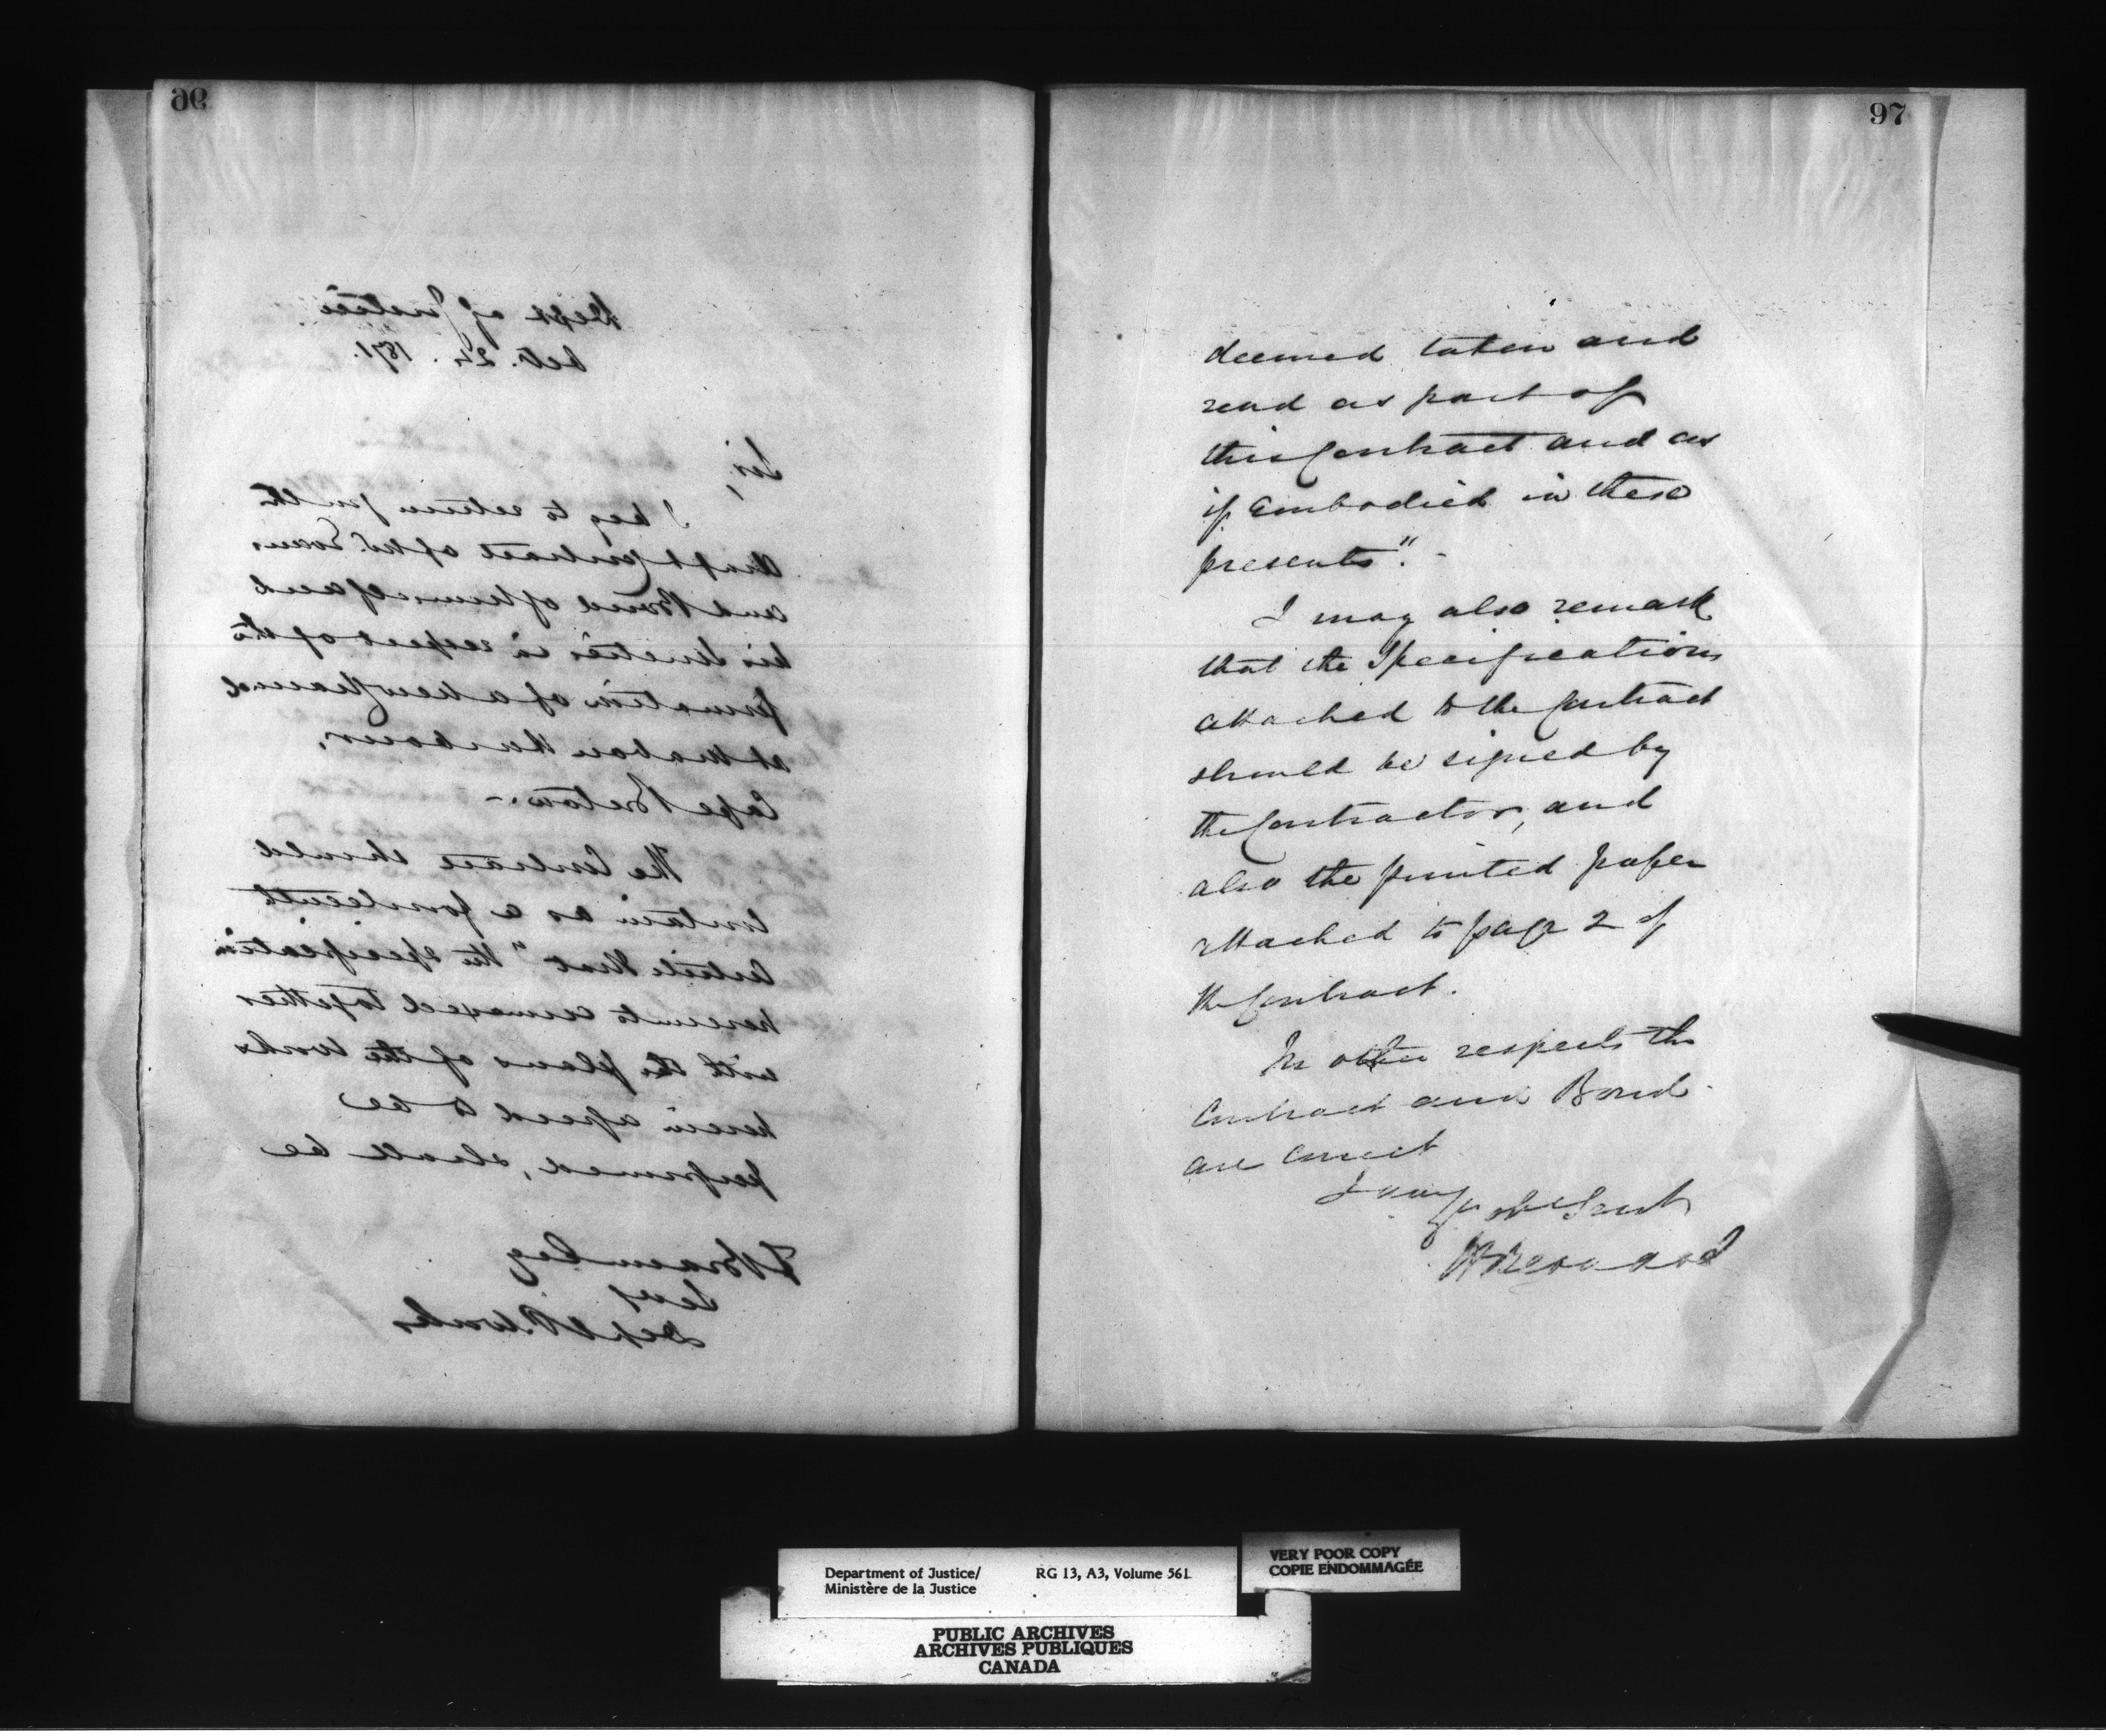 96
Dept of Justice
Oct. 24. 1871.
Sir,
I beg to return for the
draft Contract of Mr.
and Bond of himself and
his Sureties in respect of the
formation of a new Channel
at Mabou Harbour,
Cape Breton. –
The Contract should
contain as a
Article that "the specification
hereunto annexed together
with the plans of the works
herein agreed to be
performed, shall be
F Braun Esq
Secy
Dept P. Works
97
deemed taken and
read as part of
this Contract and as
if embodied in these
presents". -
I may also remark
that the Specifications
attached to the Contract
should be signed by
the Contractor, and
also the printed paper
attached to page 2 of
the Contract.
In other respects the
Contract and Bond
are correct
I am
Yr obt Servt
H Bernard
Department of Justice/
Ministère de la Justice
RG 13, A3, Volume 561
VERY POOR COPY
COPIE ENDOMMAGÉE
PUBLIC ARCHIVES
ARCHIVES PUBLIQUES
CANADA